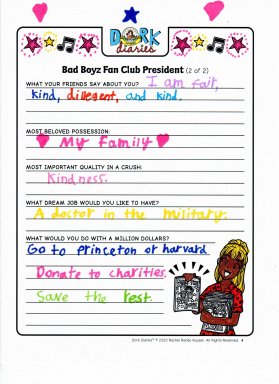 DORK
diaries
Bad Boyz Fan Club President (2 of 2)
WHAT YOUR FRIENDS SAY ABOUT YOU? I am fair,
kind, dillegent, and kind.
MOST BELOVED POSSESSION:
My family
MOST IMPORTANT QUALITY IN A CRUSH:
Kindness.
WHAT DREAM JOB WOULD YOU LIKE TO HAVE?
A doctor in the military.
WHAT WOULD YOU DO WITH A MILLION DOLLARS?
Go to princeton or harvard
Donate to charities.
Save the rest.
Dork Diaries™ © 2020 Rachel Renée Russell. All Rights Reserved. 4